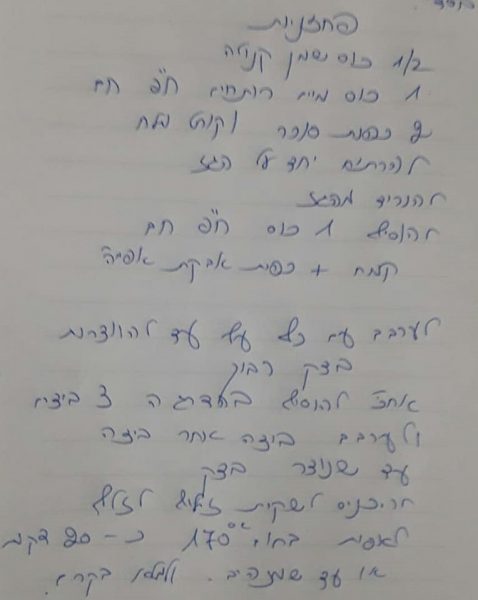 פחזניות
1/2 כוס שמן קנולה
1 כוס מים רותחים חד פ חם
2 כפות סוכר וקורט מלח
להרתיח יחד על הגז
להוריד מהגז
להוסיף 1 כוס חד פ חם
קמח + כפית אבקת אפיה
לערבב עם כף עץ עד להווצרות
בצק רבוך
אח"כ להוסיף בהדרגה 3 ביצים
ולערבב ביצה אחר ביצה
עד שנוצר בצק
מכניסים לשקית זילוף לזלף
לאפות בחום 170° כ- 20 דקות
או עד שמזהיב. למלא בקרם.